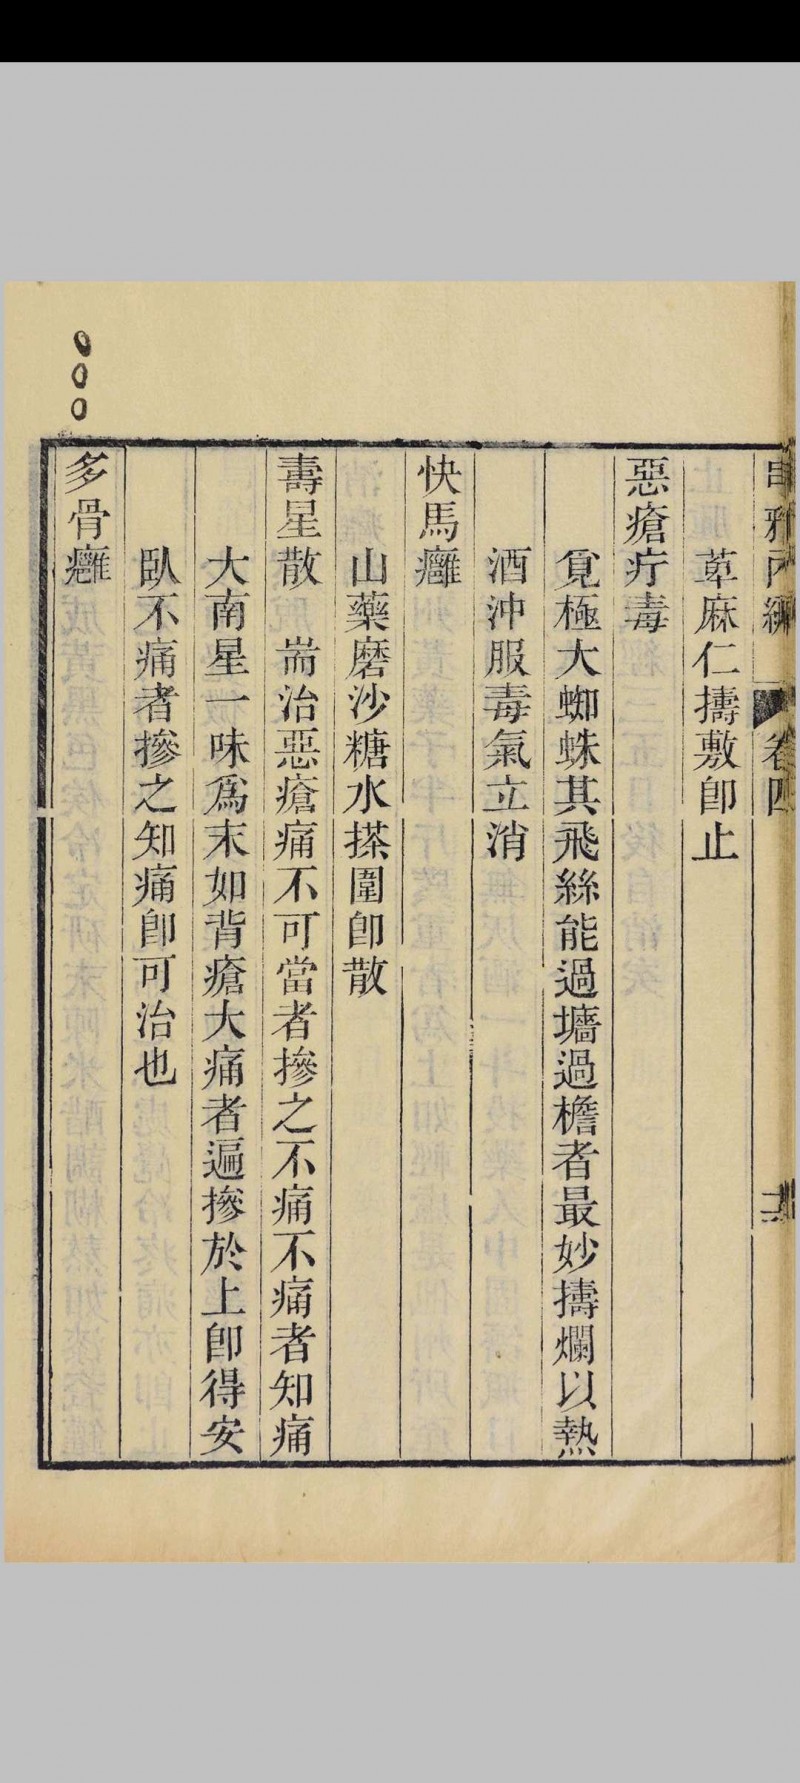 串雅內編 卷四
萆麻仁擣敷卽止
惡瘡疔毒
覓極大蜘蛛其飛絲能過墻過檐者最妙擣爛以熱
酒沖服毒氣立消
快馬癰
山藥磨沙糖水搽圍卽散
壽星散 耑治惡瘡痛不可當者摻之不痛不痛者知痛
大南星一味爲末如背瘡大痛者遍摻於上卽得安
臥不痛者摻之知痛卽可治也
多骨癰